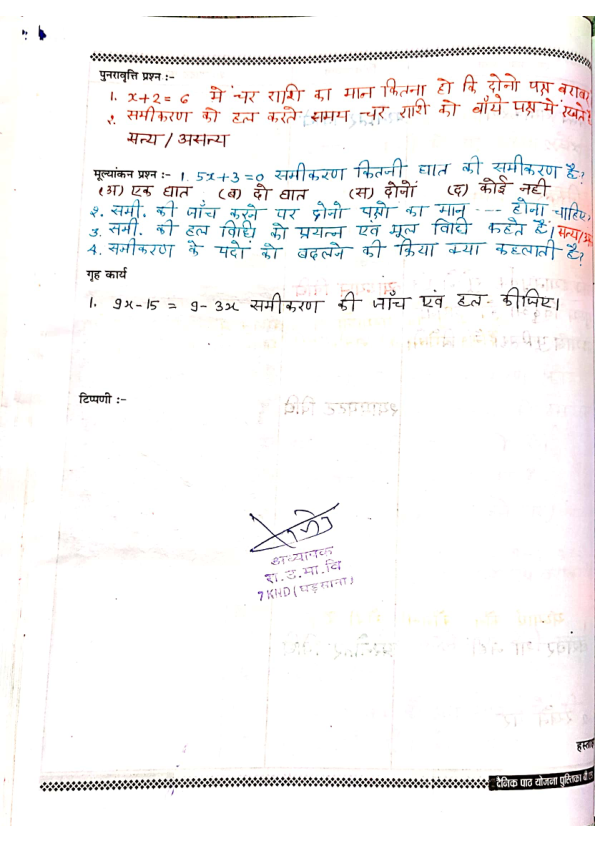 पुनरावृत्ति प्रश्न :-
1. x+2=6 में चर राशि का मान कितना हो कि दोनो पक्ष बराबर
२. समीकरण को हल करते समय चर राशि को बाँये पक्ष में रखते है
सत्य / असत्य
मूल्यांकन प्रश्न :- 1. 5x+3=0 समीकरण कितनी घात की समीकरण है?
(अ) एक घात (ब) दो घात (स) दोनों (द) कोई नही
२. समी. की जाँच करने पर दोनो पक्षो का मान --- होना चाहिए,
3. समी. की हल विधि को प्रयत्न एवं मूल विधि कहते हैं। सत्य/
4. समीकरण के पदों को बदलने की क्रिया क्या कहलाती है?
गृह कार्य
1. 9x-15 = 9-3x समीकरण की जाँच एवं हल कीजिए।
टिप्पणी :-
अध्यापक
रा.उ.मा.वि
7 KHD (घड़साना)
दैनिक पाठ योजना पुस्तिका बी